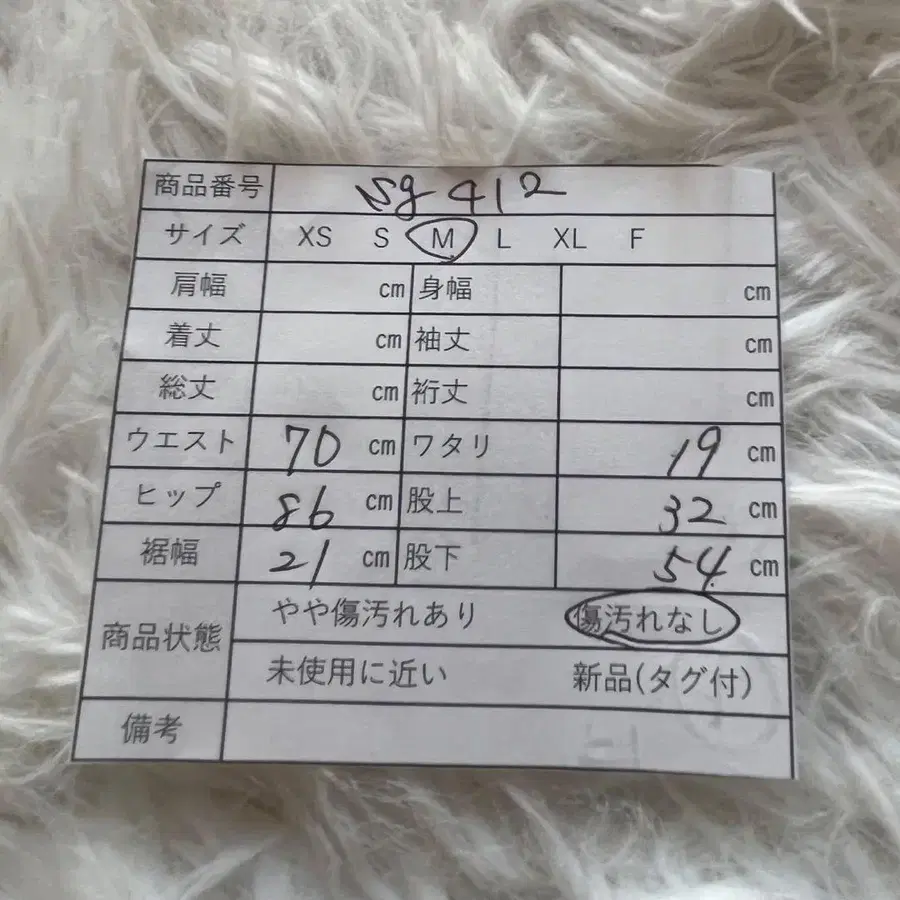 商品番号 sg 412
サイズ XS S M L XL F
肩幅 cm 身幅 cm
着丈 cm 袖丈 cm
総丈 cm 裄丈 cm
ウエスト 70 cm ワタリ 19 cm
ヒップ 86 cm 股上 32 cm
裾幅 21 cm 股下 54 cm
商品状態 やや傷汚れあり 傷汚れなし
未使用に近い 新品(タグ付)
備考